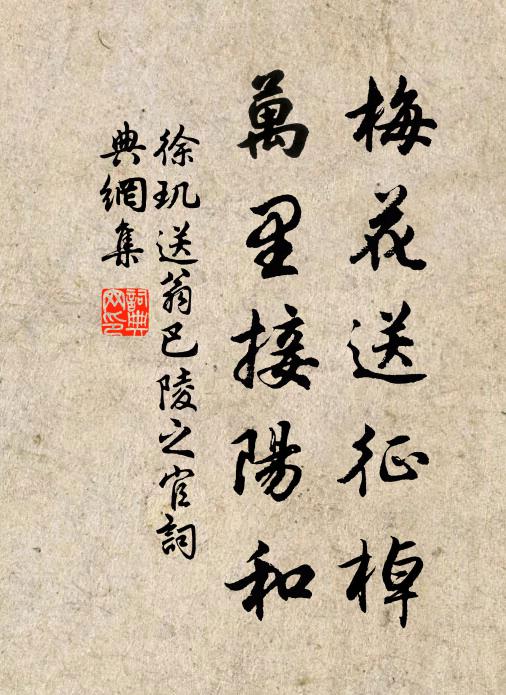 梅花送征棹
萬里接陽和
徐玑送翁巴陵之官詞
典網集
詞典网印